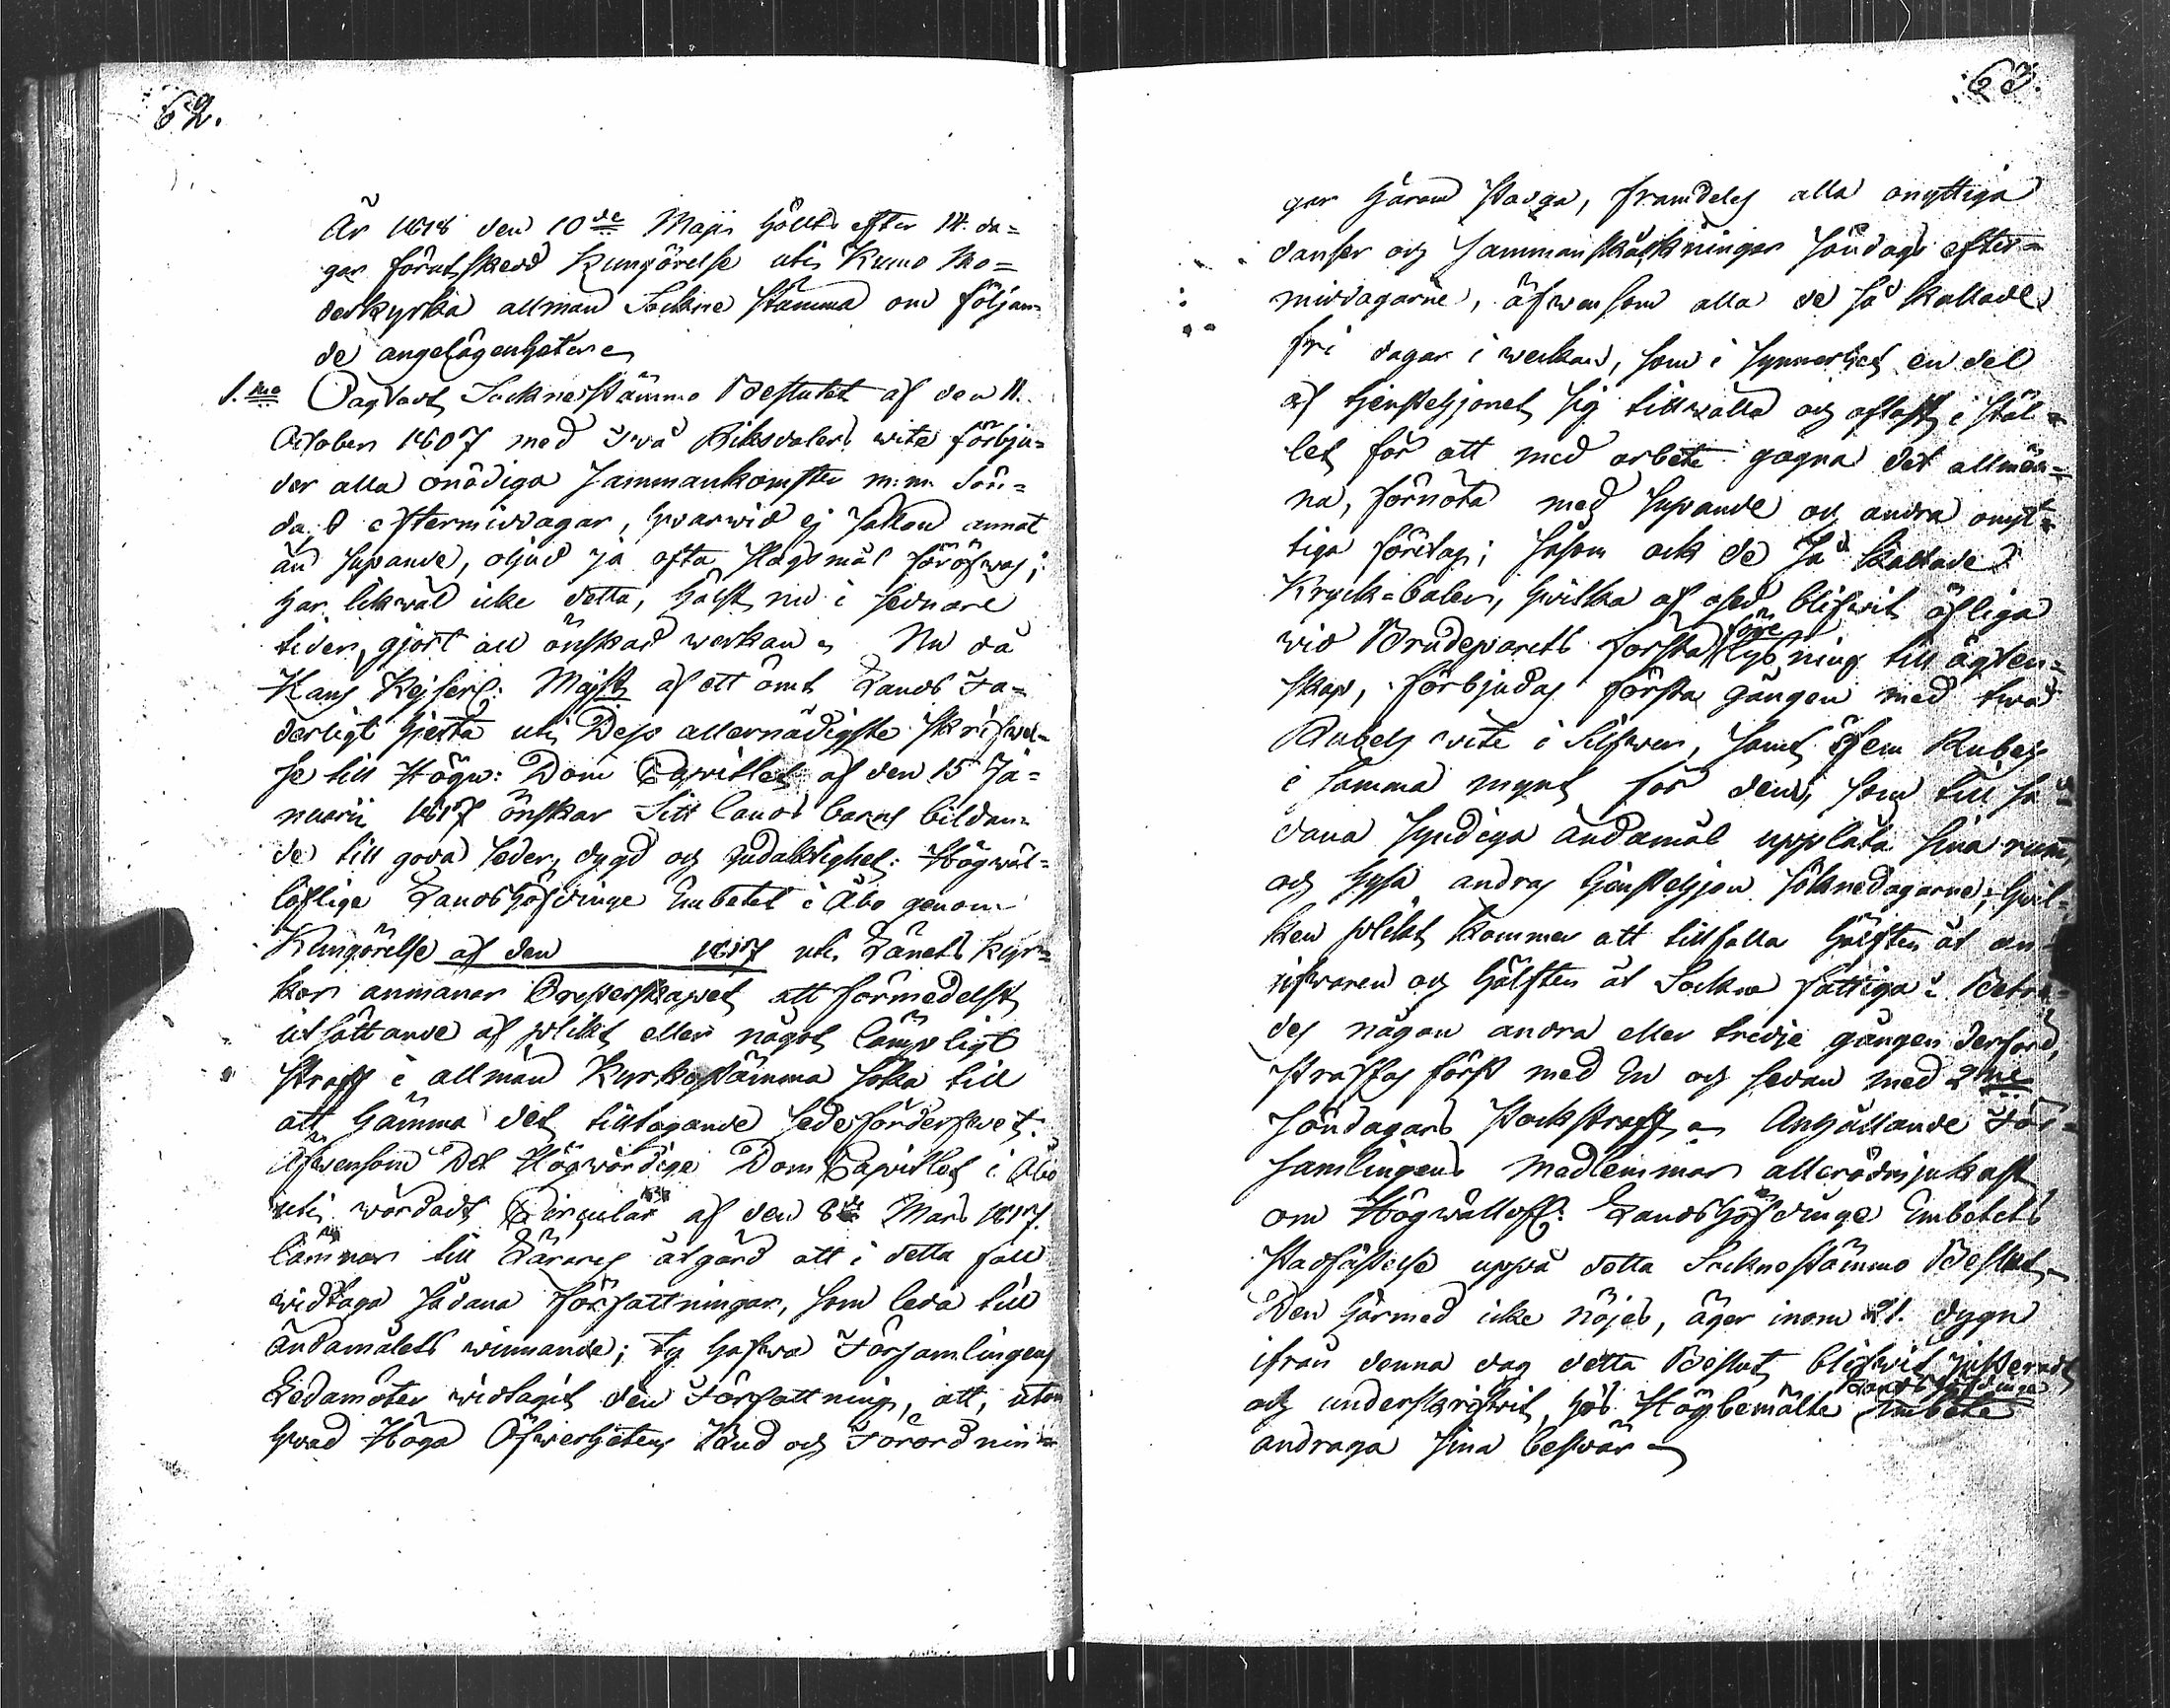 62.
År 1818 den 10de Maji hölts efter 14. da=
gar förutskedd Kungörelse uti Kumo Mo=
derkyrka allmän Sockne stämma om följan=
de angelägenheter
1.mo Oagtadt Socknestämmo Beslutet af den 11.
October 1807 med två Riksdalers wite förbju=
der alla onödiga sammankomster m.m. Sön=
dags eftermiddagar, hvarwid ej sällan annat
än supande, oljud ja ofta slagsmål föröfwas;
har likwäl icke detta, hälst nu i sednare
tider, gjort all önskad werkan. Nu då
Hans Kejserl: Majst af ett ömt Lands Fa=
derligt hjerta uti Dess allernådigste skrifwel=
se till Högw: Dom Capitlet af den 15 Ja=
nuarii 1817 önskar Sitt lands barns bildan=
de till goda seder, dygd och gudaktighet: Högwäl=
löflige Landshöfdinge Embetet i Åbo genom
Kungörelse af den 1817 uti Länets Kyr=
kor anmanar Presterskapet att förmedelst
utsättande af plikt eller något lämpligt
straff i allmän Kyrkostämma söka till
att hämma det tilltagande sedeförderfwet.
Äfwensom Det Högwördige Dom Capitlet i Åbo
uti wördadt Circulär af den 8de Mars 1817.
lämnar till Lärares åtgärd att i detta fall
widtaga sådana författningar, som leda till
ändamålets winnande; ty hafwa Församlingens
Ledamöter widtagit den Författning, att, utom
hwad Höga Öfwerhetens Påbud och Förordnin=
63.
gar härom stadga, framdeles alla onyttiga
danser och sammanskåckningar Söndags efter=
middagarne, äfwensom alla de så kallade
fri dagar i weckan, som i synnerhet en del
af tjenstehjonet sig tillwälla och oftast i stäl=
let för att med arbete gagna det allmän=
na, förnöta med supande och andra onyt=
tiga företag; såsom ock de så kallade
Kryck=baler, hwilka af osed blifwit öfliga
wid Brudeparets första före lysning till ägten=
skap, förbjudas första gången med twå
Rubels wite i Silfwer, samt fem Rubels
i samma mynt för dem, som till så=
dana syndiga ändamål upplåta sina rum,
och hysa andras tjenstehjon söknedagarne; hwil=
ken plikt kommer att tillfalla hälften åt an=
gifwaren och hälften åt Sockne fattiga: Beträ=
des någon andra eller tredje gången derför,
straffas först med En och sedan med 2ne
Söndagars stockstraff. Anhållande För=
samlingens medlemmar allerödmjukast
om Högwällofl: Landshöfdinge Embetets
stadfästelse uppå detta Socknestämmo Beslut.
Den härmed icke nöjes, äger inom 21. dygn
ifrån denna dag detta Beslut blifwit justeradt
och underskrifwit, hos Högbemälte Landshöfdinge Embete
andraga sina beswär